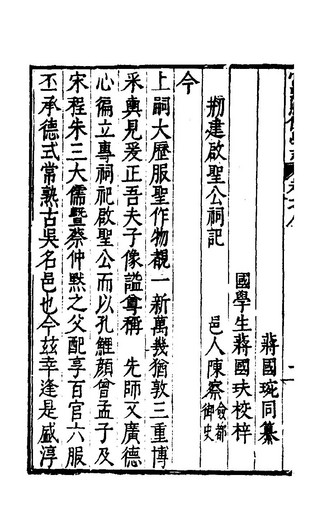 蔣國琬同纂
國學生蔣國玞校梓
邑人陳察僉都御史
剏建啟聖公祠記
今
上嗣大歷服聖作物覩一新萬幾猶敦三重博
采輿見爰正吾夫子像謚尊稱 先師又廣德
心徧立專祠祀啟聖公而以孔鯉顏曾孟子及
宋程朱三大儒曁蔡仲黙之父配享百官六服
丕承德式常熟古吳名邑也今玆幸逢是盛淳